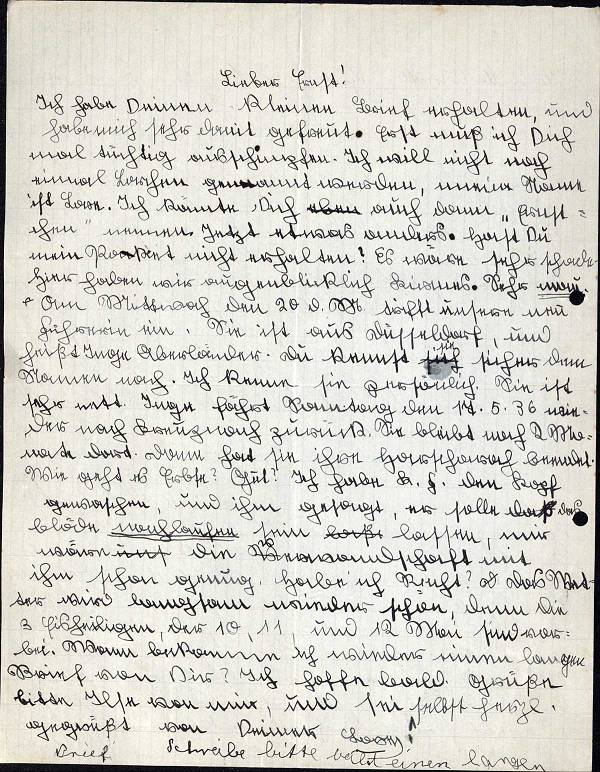 Lieber Ernst!
Ich habe Deinen kleinen Brief erhalten, und
habe mich sehr damit gefreut. Erst muß ich Dich
mal tüchtig ausschimpfen. Ich will nicht noch
einmal Lorchen genannt werden, mein Name
ist Lore. Ich könnte Dich eben auch dann „Ernst-
chen" nennen. Jetzt etwas anders. Hast Du
mein Paket nicht erhalten? Es wäre sehr schade.
hier haben wir augenblicklich Kirmes. Sehr
Am Mittwoch den 20 d. M. trifft unsere neu
Führerin ein. Sie ist aus Düsseldorf, und
heißt Inge Oberländer. Du kennst sie sicher dem
Namen nach. Ich kenne sie persönlich. Sie ist
sehr nett. Inge fährt Sonntag den 17. 5. 36 wie-
der nach Kreuznach zurück. Sie bleibt noch 2 Mo-
nate dort. dann hat sie ihre beendet.
Wie geht es Erbse? Gut? Ich habe K. J. den Kopf
gewaschen, und ihm gesagt, er solle daß das
blöde nachlaufen sein lassen, nur
wäre uns die Verwandschaft mit
ihm schon genug. Habe ich Recht? Das Wet-
ter wird langsam wieder schön, denn die
3 Eisheiligen, der 10, 11, und 12 Mai sind vor-
bei. Wann bekomme ich wieder einen langen
Brief von Dir? Ich hoffe bald. Grüße
bitte Ilse von mir, und sei selbst herzl.
gegrüßt von Deiner Lore!
Schreibe bitte bald einen langen
Brief